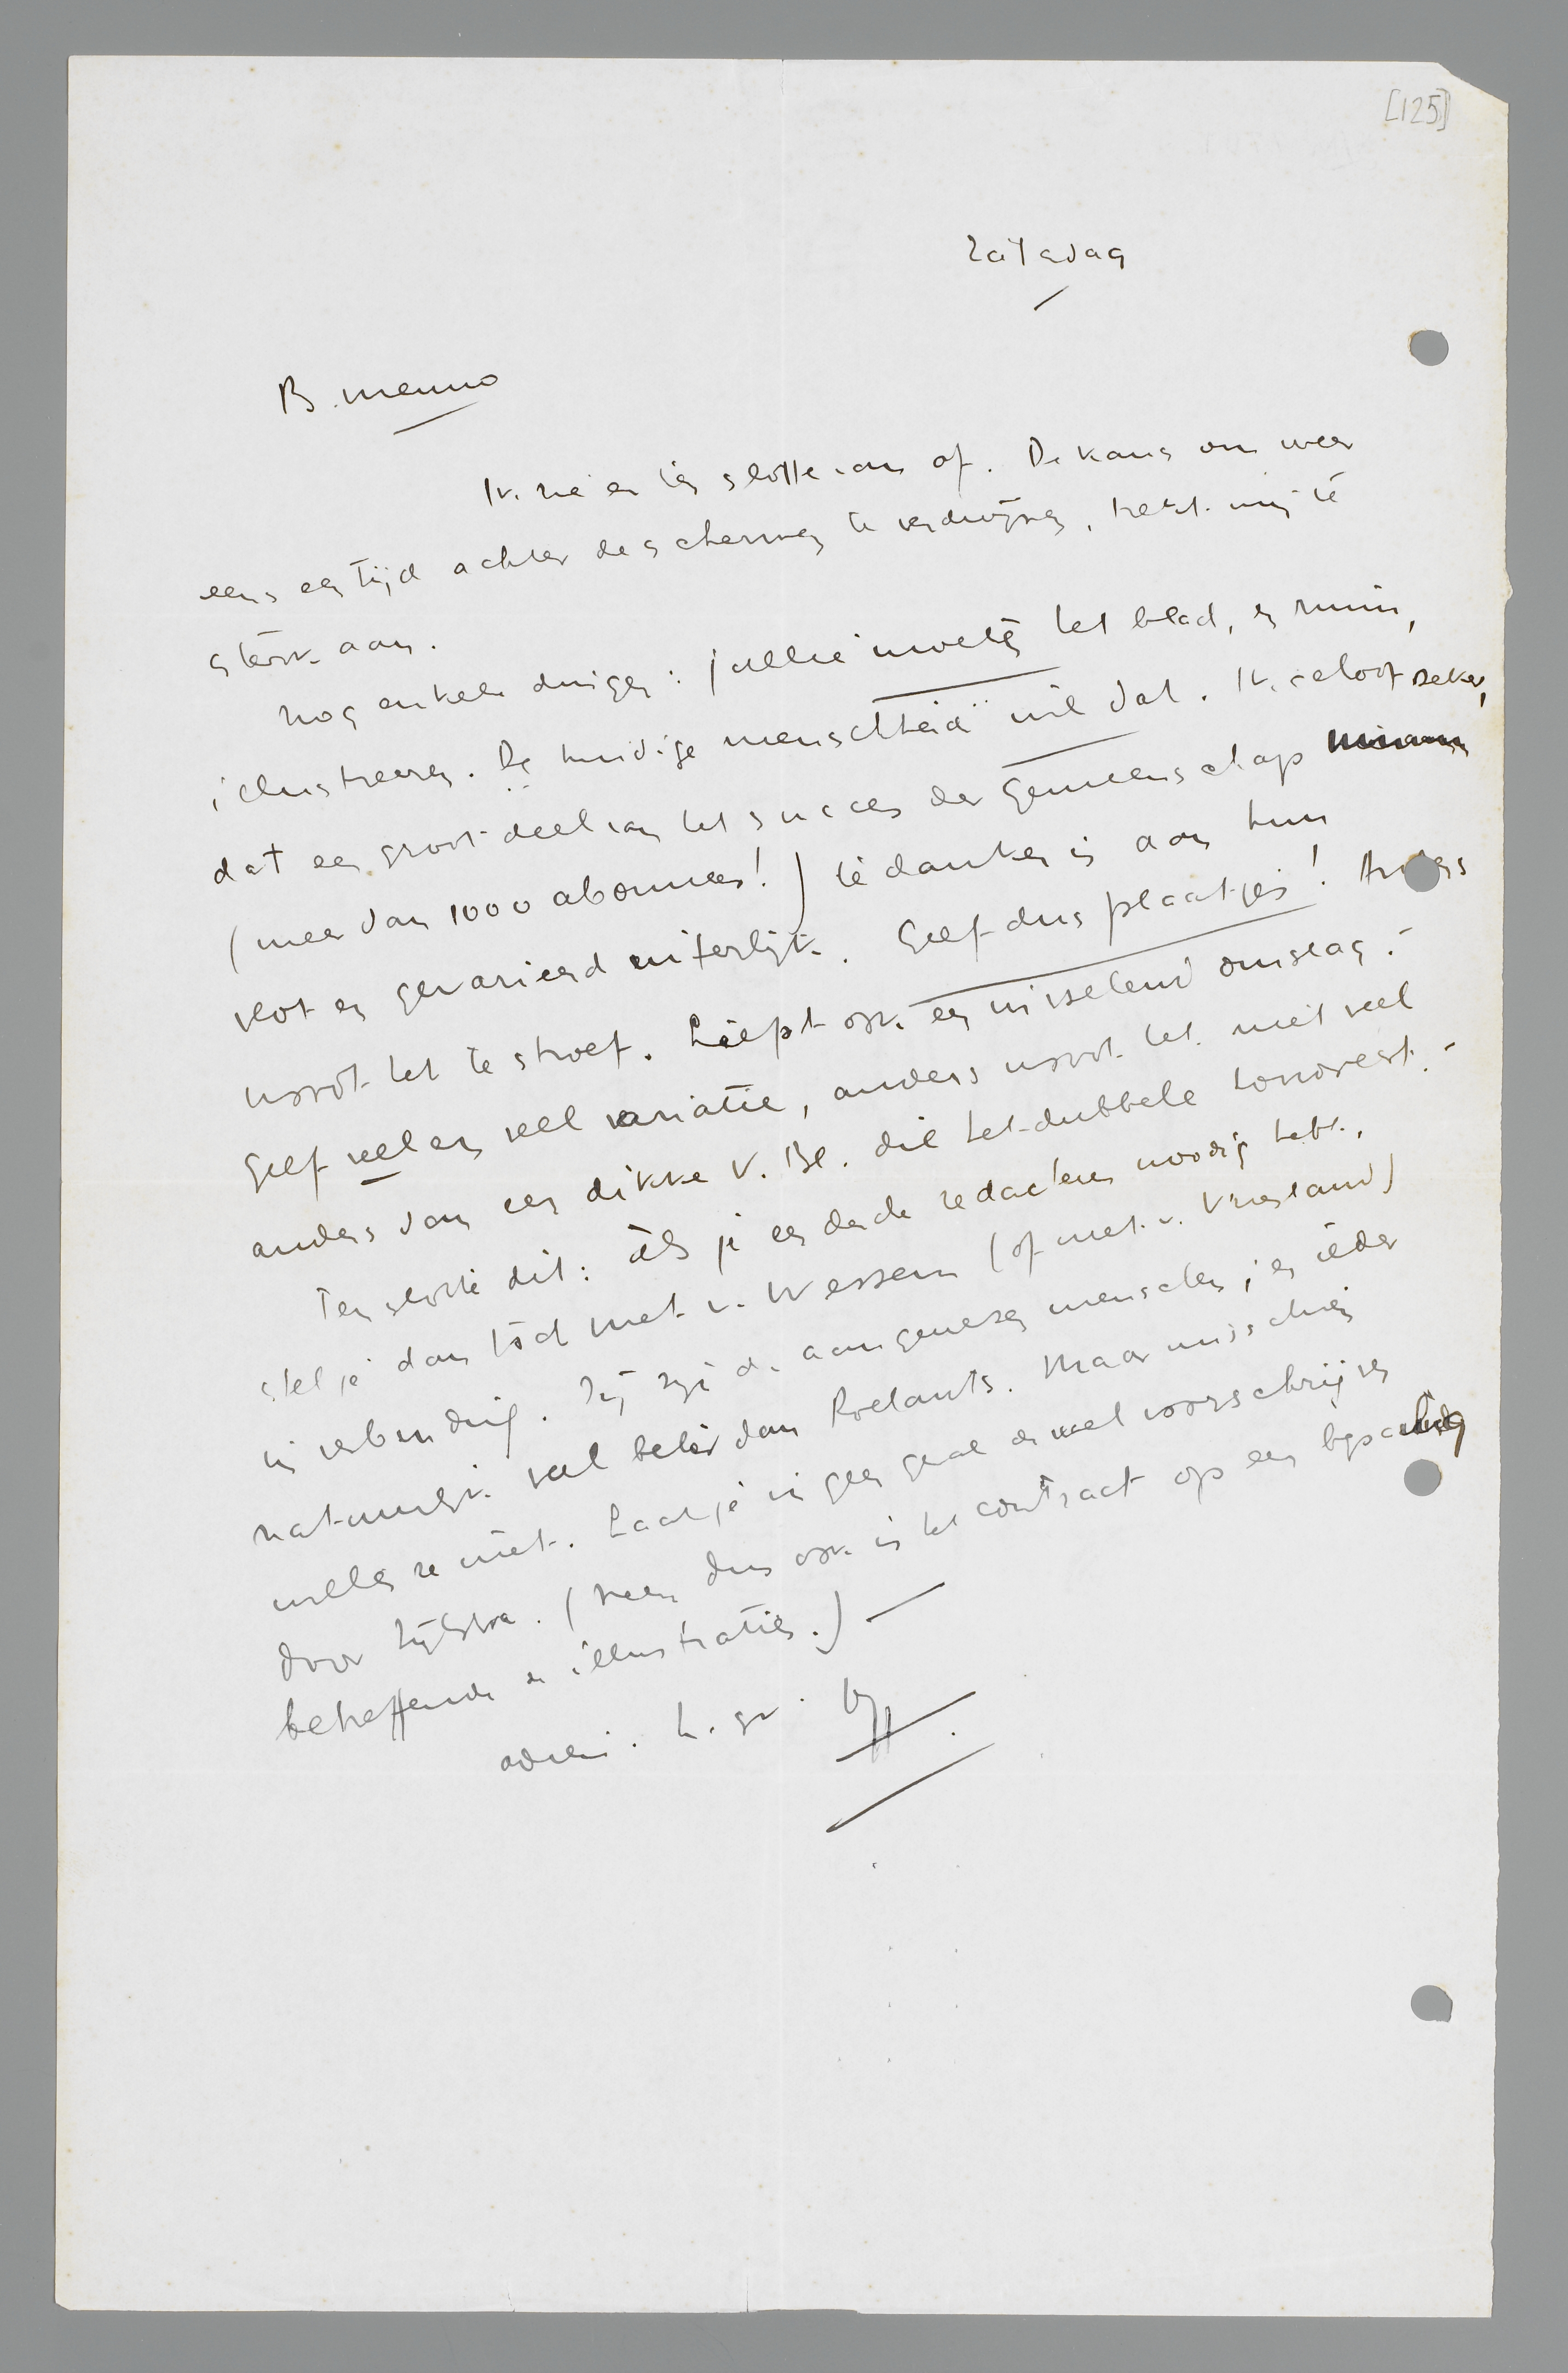 [125]
Zaterdag
B. Menno
Ik zie er ten slotte van af. De kans om weer
eens een tijd achter de schermen te verdwijnen, trekt mij te
sterk aan.
Nog enkele dingen: jullie moeten het blad, en ruim,
illustreeren. De huidige menschheid wil dat. Ik geloof zeker,
dat een groot deel van het succes der Gemeenschap
(meer dan 1000 abonnees!) te danken is aan hun
vlot en gevarieerd uiterlijk. Geef dus plaatjes! Anders
wordt het te stroef. Liefst ook een wisselend omslag.-
Geef veel en veel variatie, anders wordt het niet veel
anders dan een dikke V. Bl. die het dubbele kost.-
Ten slotte dit: als je een derde redacteur noodig hebt,
stel je dan tóch met v. Wessem (of met v. Vriesland)
in verbinding. Zij zijn de aangewezen menschen; en ieder
natuurlijk veel beter dan Roelants. Maar misschien
willen ze niet. Laat je in geen geval de wet voorschrijven
door Zijlstra. (Neem dus ook in het contract op een bepaling
betreffende de illustraties.) —
adieu. h. gr.